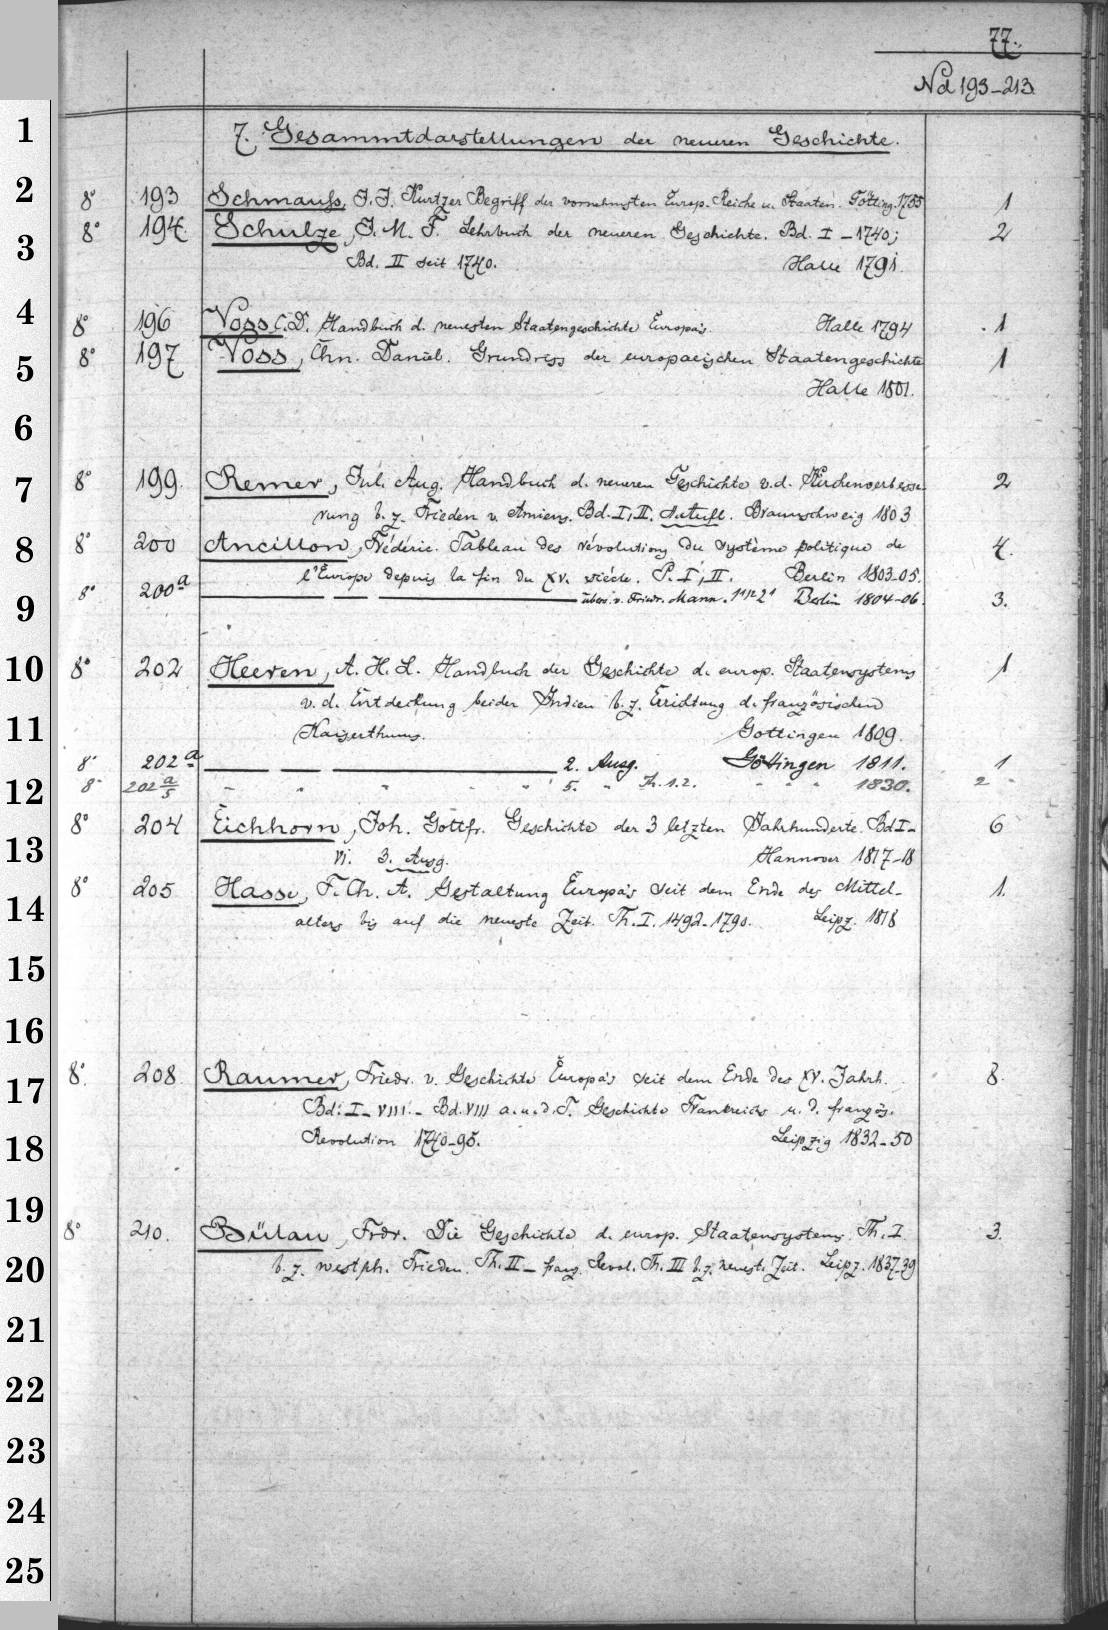 77.
Nd 193-213.
1 7. Gesammtdarstellungen der neueren Geschichte.
2 8° 193 Schmauss, J. J. Kurtzer Begriff der vornehmsten Europ. Reiche u. Staaten. Götting. 1755 1
3 8° 194. Schulze, J. M. F. Lehrbuch der neueren Geschichte. Bd. I - 1740; 2
Bd. II seit 1740. Halle 1791.
4 8° 196 Voss C. D. Handbuch d. neuesten Staatengeschichte Europa's. Halle 1794 1
5 8° 197 Voss, Chn. Daniel. Grundress der europaeischen Staatengeschichte 1
Halle 1801.
6
7 8° 199. Remer, Jul. Aug. Handbuch d. neueren Geschichte v. d. Kirchenverbesse- 2
rung b. z. Frieden v. Amiens. Bd. I, II. Aufl. Braunschweig 1803
8 8° 200 Ancillon, Frédéric. Tableau des révolutions du système politique de 4.
l'Europe depuis la fin du XV. siècle. P. I, II. Berlin 1803-05.
9 8° 200a übers. v. Friedr. Mann. Berlin 1804-06. 3.
10 8° 202 Heeren, A. H. L. Handbuch der Geschichte d. europ. Staatensystems 1
v. d. Entdeckung beider Indien b. z. Errichtung d. französischen
11 Kaiserthums. Gottingen 1809.
8° 202a 2. Ausg. Göttingen 1811. 1
12 8° 202 a/5 " " " " 5. " Th. 1. 2. " " " 1830. 2
8° 204 Eichhorn, Joh. Gottfr. Geschichte der 3 letzten Jahrhunderte. Bd I- 6
13 VI. 3. Ausg. Hannover 1817-18
14 8° 205 Hasse, F. Ch. A. Gestaltung Europa's seit dem Ende des Mittel- 1.
alters bis auf die neueste Zeit. Th. I. 1492-1790. Leipz. 1818
15
16
17 8° 208 Raumer, Friedr. v. Geschichte Europa's seit dem Ende des XV. Jahrh. 8.
Bd. I-VIII. - Bd. VIII a. u. d. T. Geschichte Frankreichs u. d. französ.
18 Revolution 1740-95. Leipzig 1832-50
19 8° 210. Bülau, Frdr. Die Geschichte d. europ. Staatensystems. Th. I 3.
20 b. z. westph. Frieden. Th. II - franz. Revol. Th. III b. z. neuest. Zeit. Leipz. 1837-39
21
22
23
24
25